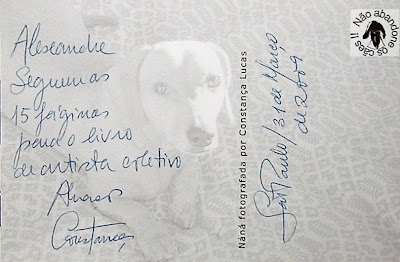 Alexandre
Seguem as
15 páginas
para o livro
de artista coletivo
Abraços
Constança
Náná fotografada por Constança Lucas
São Paulo / 31 de Março
de 2009
Não abandone os cães !!